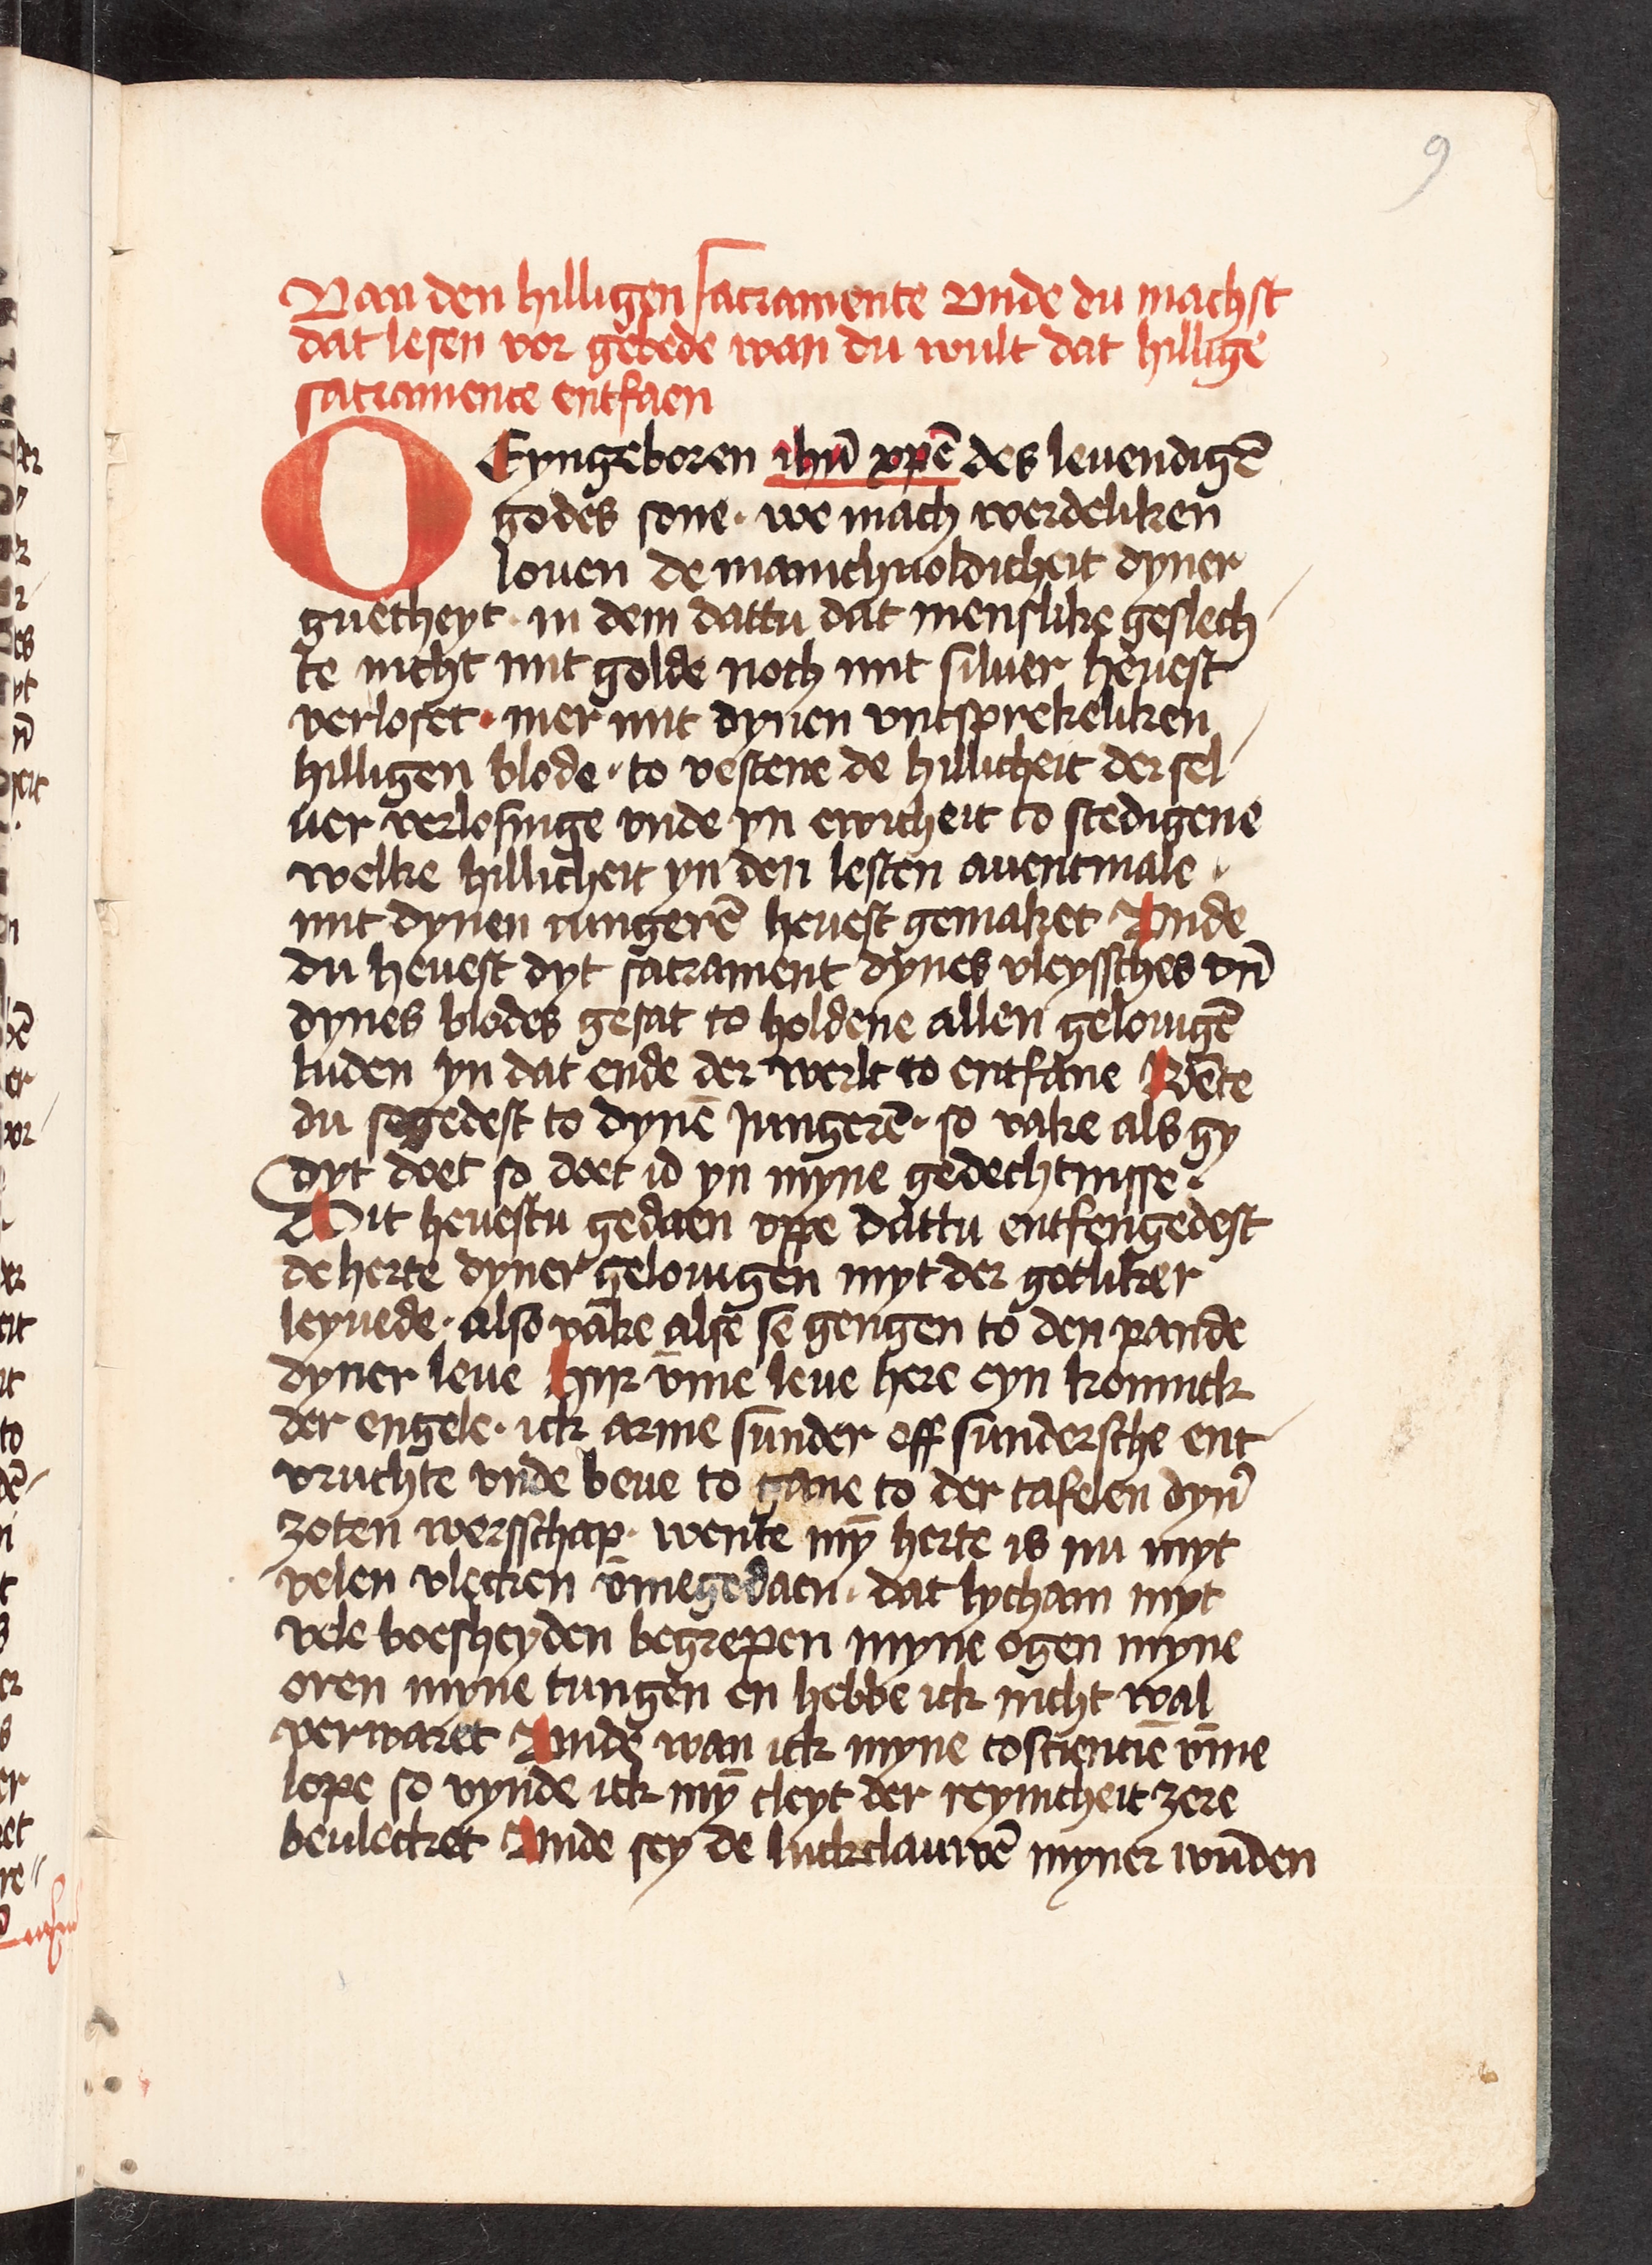 9
Van den hilligen sacramente Vnde du machst
dat lesen vor gebede wan du wult dat hillige
sacramente entfaen
O Eyngeboren ihū xpē des leuendigē
godes sone · we mach werdeliken
louen de manichuoldicheit dyner
guetheyt · in dem dattu dat menslike geslech
te nicht mit golde noch mit siluer heuest
verloset · mer mit dynen vntsprekeliken
hilligen blode · to vestene de hillicheit der sel
uer verlosinge vnde yn ewicheit to stedigene
welke hillicheit yn den lesten auentmale ·
mit dynen iungerē heuest gemaket Vnde
du heuest dyt sacrament dynes vleyssches vn̄
dynes blodes gesat to holdene allen gelouigē
luden yn dat ende der werlt to entfane Wēte
du segedest to dynē Jungerē · so vake als gy
dyt doet so doet id yn myne gedechtnisse ·
Dit heuestu gedaen vppe dattu entfengedest
de herte dyner gelouigen myt der gotliker
leyuede · also vake alse se gengen to den pande
dyner leue Hijr v̄me leue here eyn konninck
der engele · ick arme sunder off sundersche ent
vruchte vnde beue to gane to der tafelen dyn̄
zoten werschap · wente mȳ herte is nu myt
velen vlecken v̄megedaen · dat lycham myt
vele boesheyden begrepen myne ogen myne
oren myne tungen en hebbe ick nicht wal
verwaret Vnde wan ick myne cosciencie v̄me
lope so vynde ick mȳ cleyt der reynicheit zere
beulecket Vnde sey de luckclauwē myner wūden